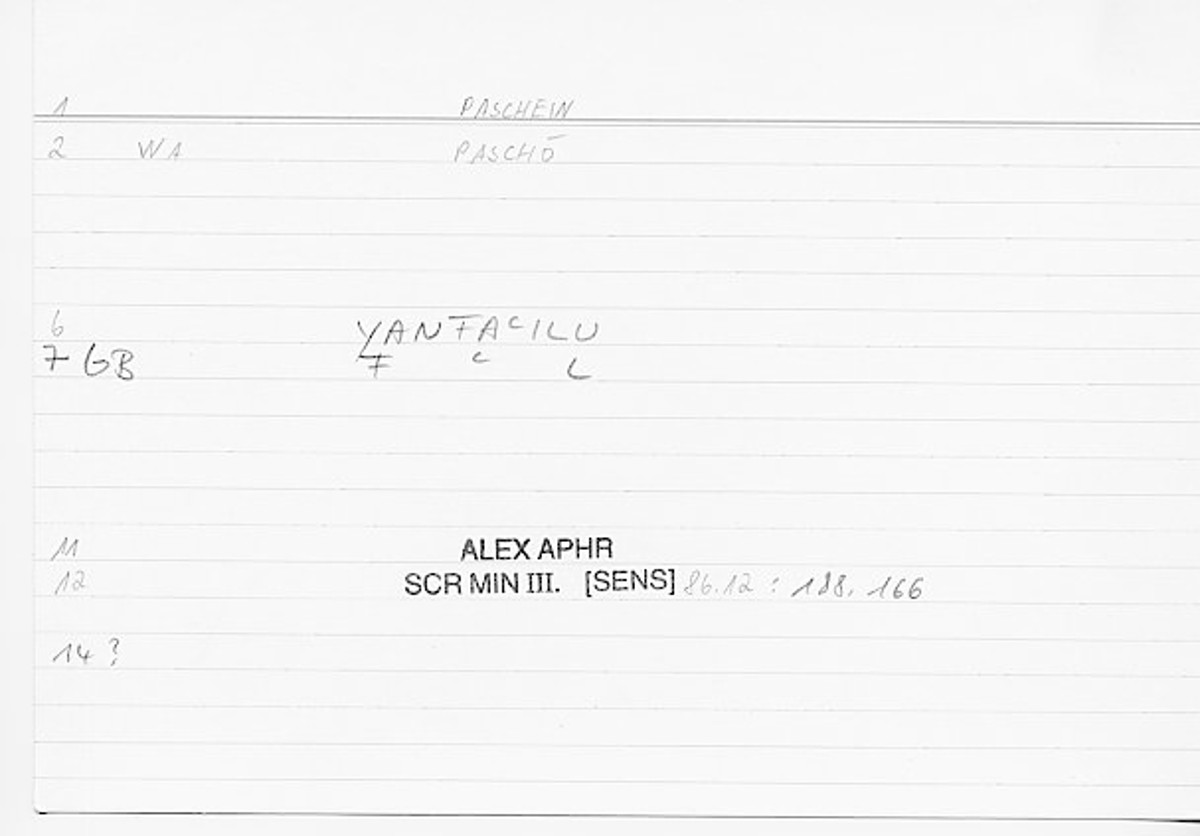 1 PASCHEIN
2 WA PASCHŌ
6 YANFAcILU
7 GB F c L
11 ALEX APHR
12 SCR MIN III. [SENS] 86.12 : 188. 166
14 ?